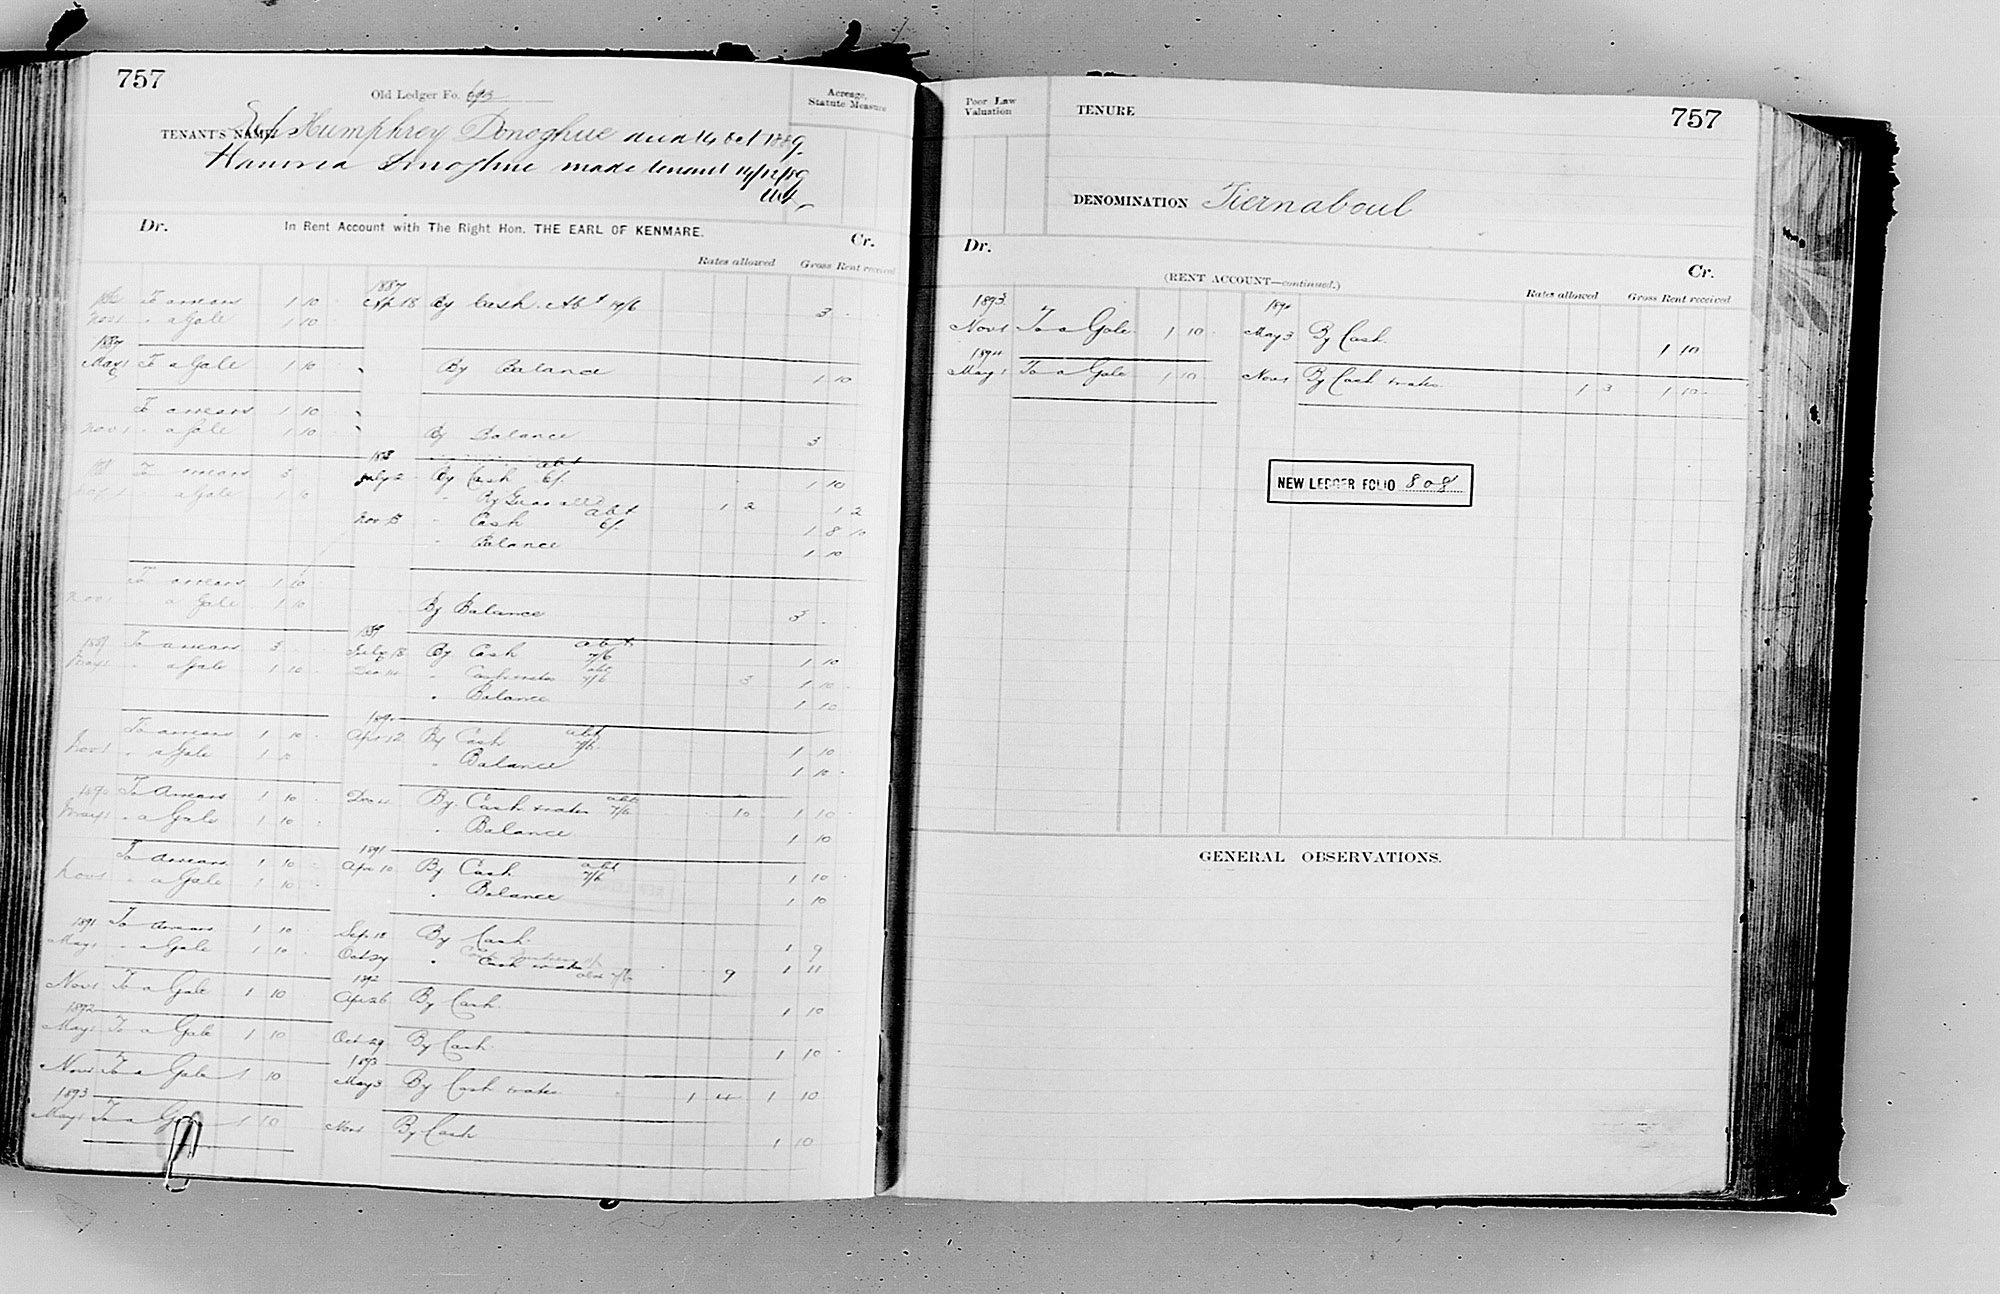 757
Old Ledger Fo.
TENANT'S NAME Humphrey Donoghue died 14 Oct 1889
Donoghue made tenant 14/12/89
Acreage, Statute Measure
Dr. In Rent Account with The Right Hon. THE EARL OF KENMARE. Cr.
Rates allowed Gross Rent received
1887
To arrears 1 10 Apr 18 By Cash Abt 3
Nov 1 " a Gale 1 10
1887
May 1 To a Gale 1 10 By Balance 1 10
To arrears 1 10
Nov 1 " a Gale 1 10 By Balance 3
1888
To arrears 3 July 2 By Cash abt 6/. 1 10
a Gale 1 10 1 2 1 2
Nov " Cash abt 6/. 1 8 10
" Balance 1 10
To arrears 1 10
Nov 1 a Gale 1 10 By Balance 3
1889
1889 To arrears 3 July 18 By Cash abt 7/6 1 10
May 1 " a Gale 1 10 Dec 14 " Cash & rates abt 7/6 3 1 10
" Balance 1 10
1890
To arrears 1 10 Apr 12 By Cash abt 7/6 1 10
Nov 1 " a Gale 1 10 " Balance 1 10
1890 To arrears 1 10 Dec By Cash & rates abt 7/6 10 1 10
May 1 " a Gale 1 10 " Balance 1 10
1891
To arrears 1 10 Apr 10 By Cash abt 7/6 1 10
Nov 1 " a Gale 1 10 " Balance 1 10
1891 To arrears 1 10 Sep 18 By Cash 1 9
May 1 " a Gale 1 10 Oct 24 " Cash & rates abt 7/6 9 1 11
1892
Nov 1 To a Gale 1 10 Apr 26 By Cash 1 10
1892
May 1 To a Gale 1 10 Oct 29 By Cash 1 10
1893
Nov 1 To a Gale 1 10 May 3 By Cash & rates 1 4 1 10
1893
May 1 To a Gale 1 10 Nov 1 By Cash 1 10
Poor Law Valuation
TENURE
757
DENOMINATION Tiernaboul
Dr. Cr.
(RENT ACCOUNT—continued.)
Rates allowed Gross Rent received
1893 189
Nov 1 To a Gale 1 10 May 3 By Cash 1 10
1894
May 1 To a Gale 1 10 Nov 1 By Cash & rates 1 3 1 10
NEW LEDGER FOLIO 808
GENERAL OBSERVATIONS.